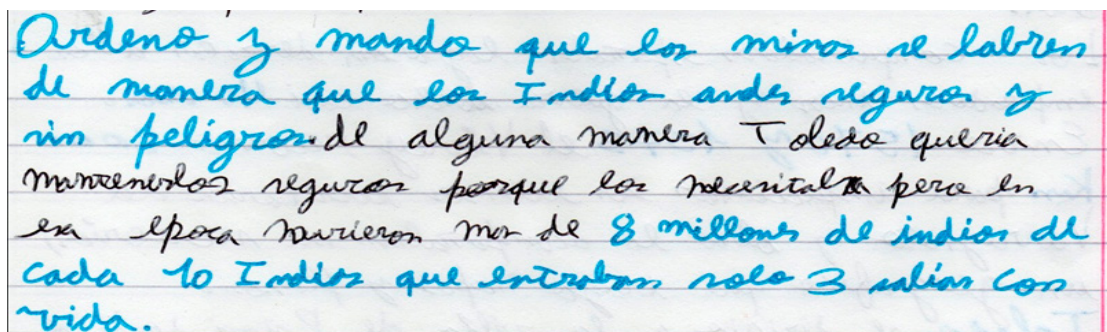 Ordeno y mando que los minas se labren
de manera que los Indios andes seguros y
sin peligros. de alguna manera Toledo queria
mantenerlos seguros porque los necesitaba pero en
esa epoca murieron mas de 8 millones de indios de
cada 10 Indios que entraban solo 3 salian con
vida.